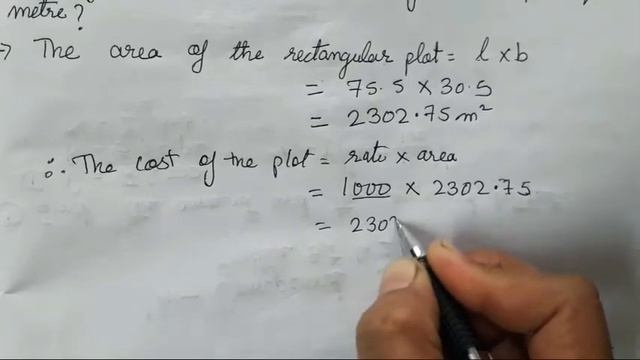 metre?
→ The area of the rectangular plot = l x b
= 75.5 x 30.5
= 2302.75 m²
∴ The cost of the plot = rate x area
= 1000 x 2302.75
= 230